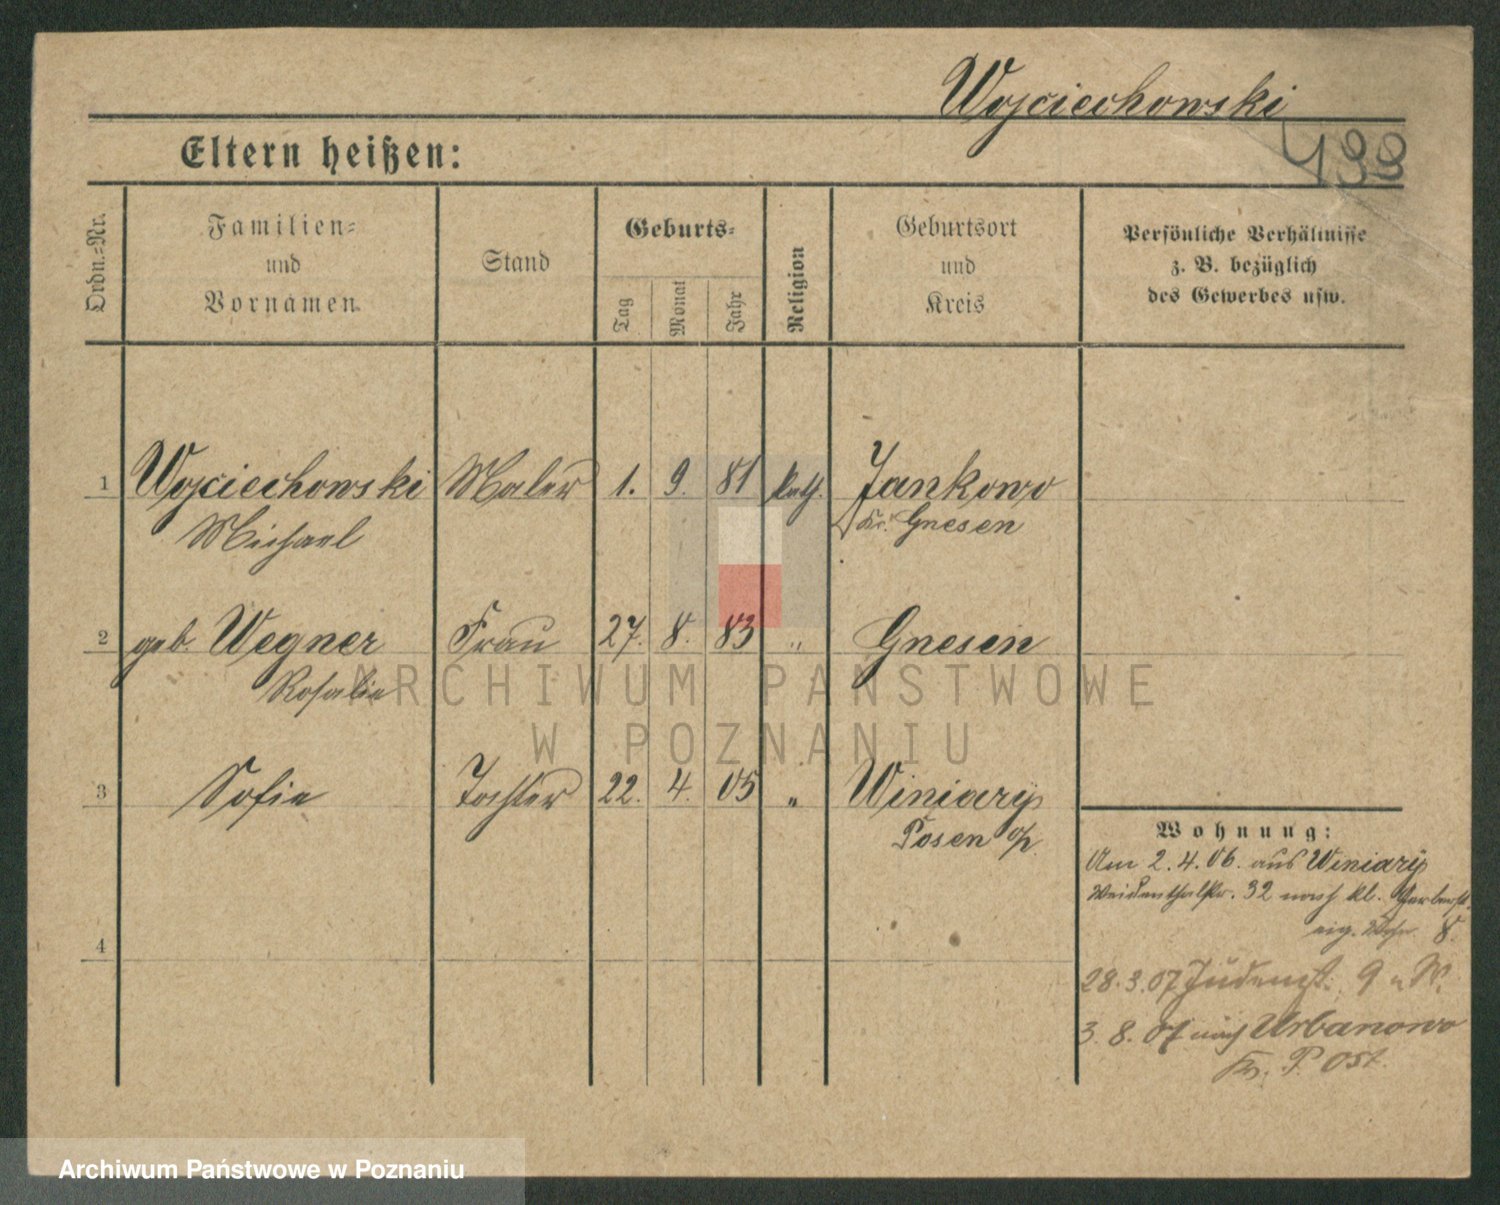 Wojciechowski
Eltern heißen:
493
Ordn.-Nr.
Familien- und Vornamen
Stand
Geburts-
Tag
Monat
Jahr
Religion
Geburtsort und Kreis
Persönliche Verhältnisse
z. B. bezüglich
des Gewerbes usw.
1 Wojciechowski Maler 1. 9. 81 kath. Jankowo
Michael Kr. Gnesen
2 geb. Wegner Frau 27. 8. 83 " Gnesen
Rosalie
3 Sofie Tochter 22. 4. 05 " Winiary
Posen O/P.
4
Wohnung:
Am 2.4.06. aus Winiary
Weidenthalstr. 32 nach kl. Gerberst.
eig. Wohn. 8.
28.3.07 Judenst. 9
3. 8. 07 nach Urbanowo
Kr. P. Ost.
ARCHIWUM PAŃSTWOWE
W POZNANIU
Archiwum Państwowe w Poznaniu